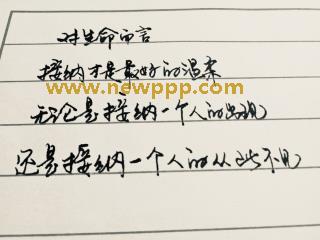 对生命而言
接纳才是最好的温柔
www.newppp.com
无论是接纳一个人的出现
还是接纳一个人的从此不见